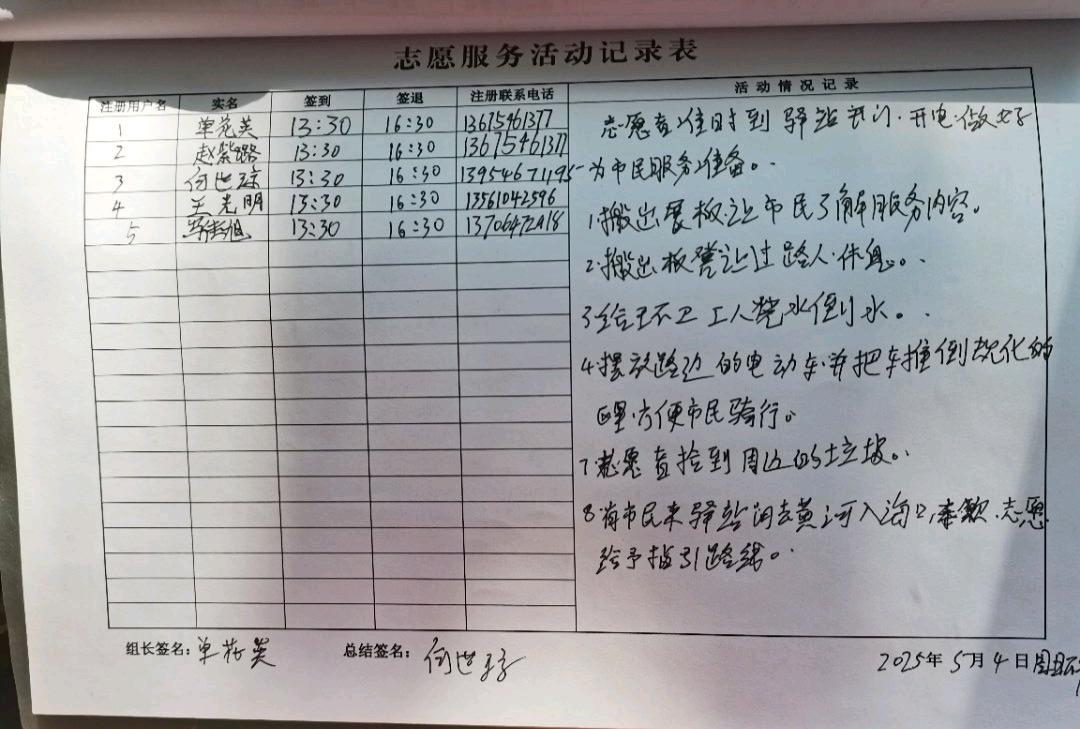 志愿服务活动记录表
注册用户名 实名 签到 签退 注册联系电话 活动情况记录
1 单花英 13:30 16:30 13675461377
2 赵紫璐 13:30 16:30 13675461377
3 何世琼 13:30 16:30 13954671195
4 王光明 13:30 16:30 13561042596
5 13:30 16:30
志愿者准时到驿站开门.开电.做好
为市民服务准备。
1.搬出展板.让市民了解服务内容。
2.搬出板凳让过路人.休息。
3给环卫工人烧水倒水。
4摆放路边的电动车.并把车推到规化的
位置.方便市民骑行。
7志愿者捡到周边的垃圾。
8有市民来驿站问去黄河入海口,乘车.志愿
给予指引路线。
组长签名:单花英 总结签名:何世琼
2025年5月4日周日